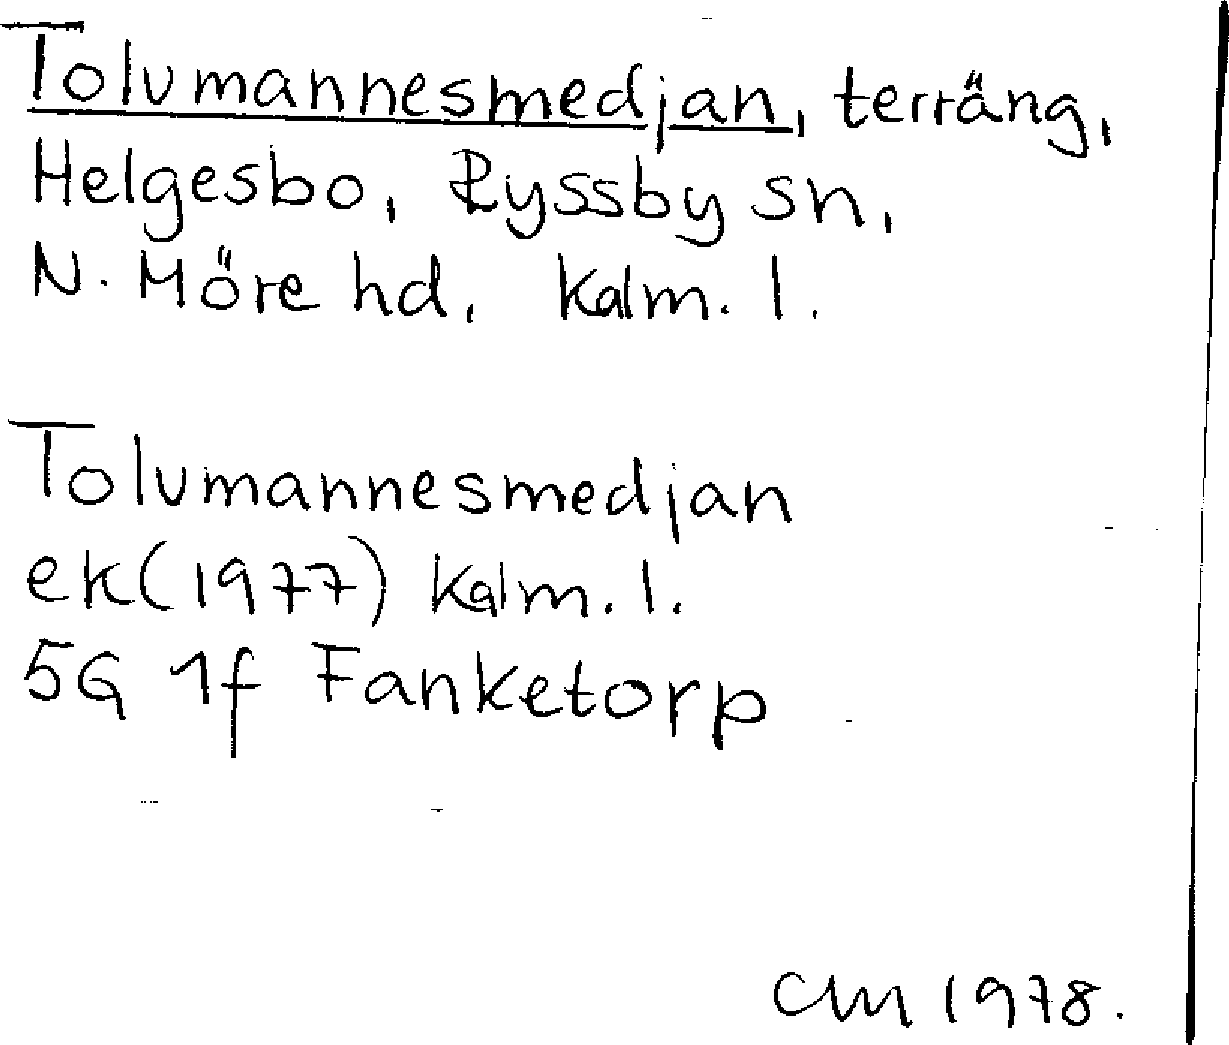 Tolvmannesmedjan, terräng,
Helgesbo, Ryssby sn,
N. Möre hd, Kalm. l.
Tolvmannesmedjan
ek (1977) Kalm. l.
5G 1f Fanketorp
CM 1978.